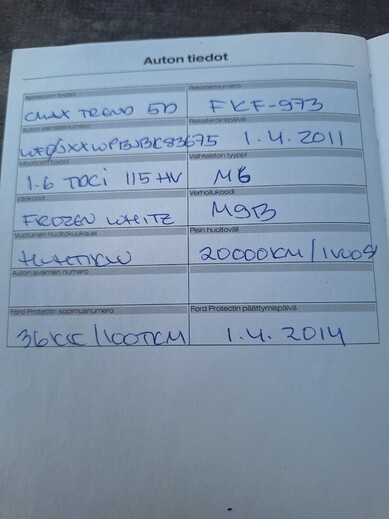 Auton tiedot
Ajoneuvon tyyppi Rekisterinumero
CMAX TREND 5D FKF-973
Auton valmistenumero Rekisteröintipäivä
1.4.2011
Moottorin tyyppi Vaihteiston tyyppi
1.6 TDCi 115 HV M6
Värikoodi Verhoilukoodi
FROZEN WHITE M9B
Vuotuinen huoltokuukausi Pisin huoltoväli
HUHTIKUU 20000KM/1VUOSI
Auton avaimen numero
Ford Protectin sopimusnumero Ford Protectin päättymispäivä
36KK/100TKM 1.4.2014